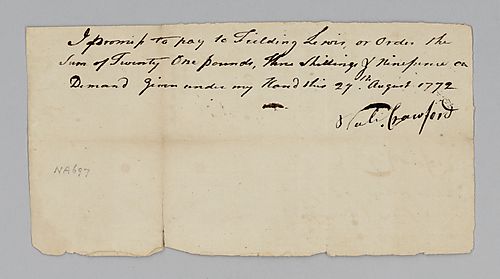 I promise to pay to Fielding Lewis, or Order the
Sum of Twenty One pounds, three Shillings & Ninepence on
Demand Given under my Hand this 27th August 1772
Crawford
NA697